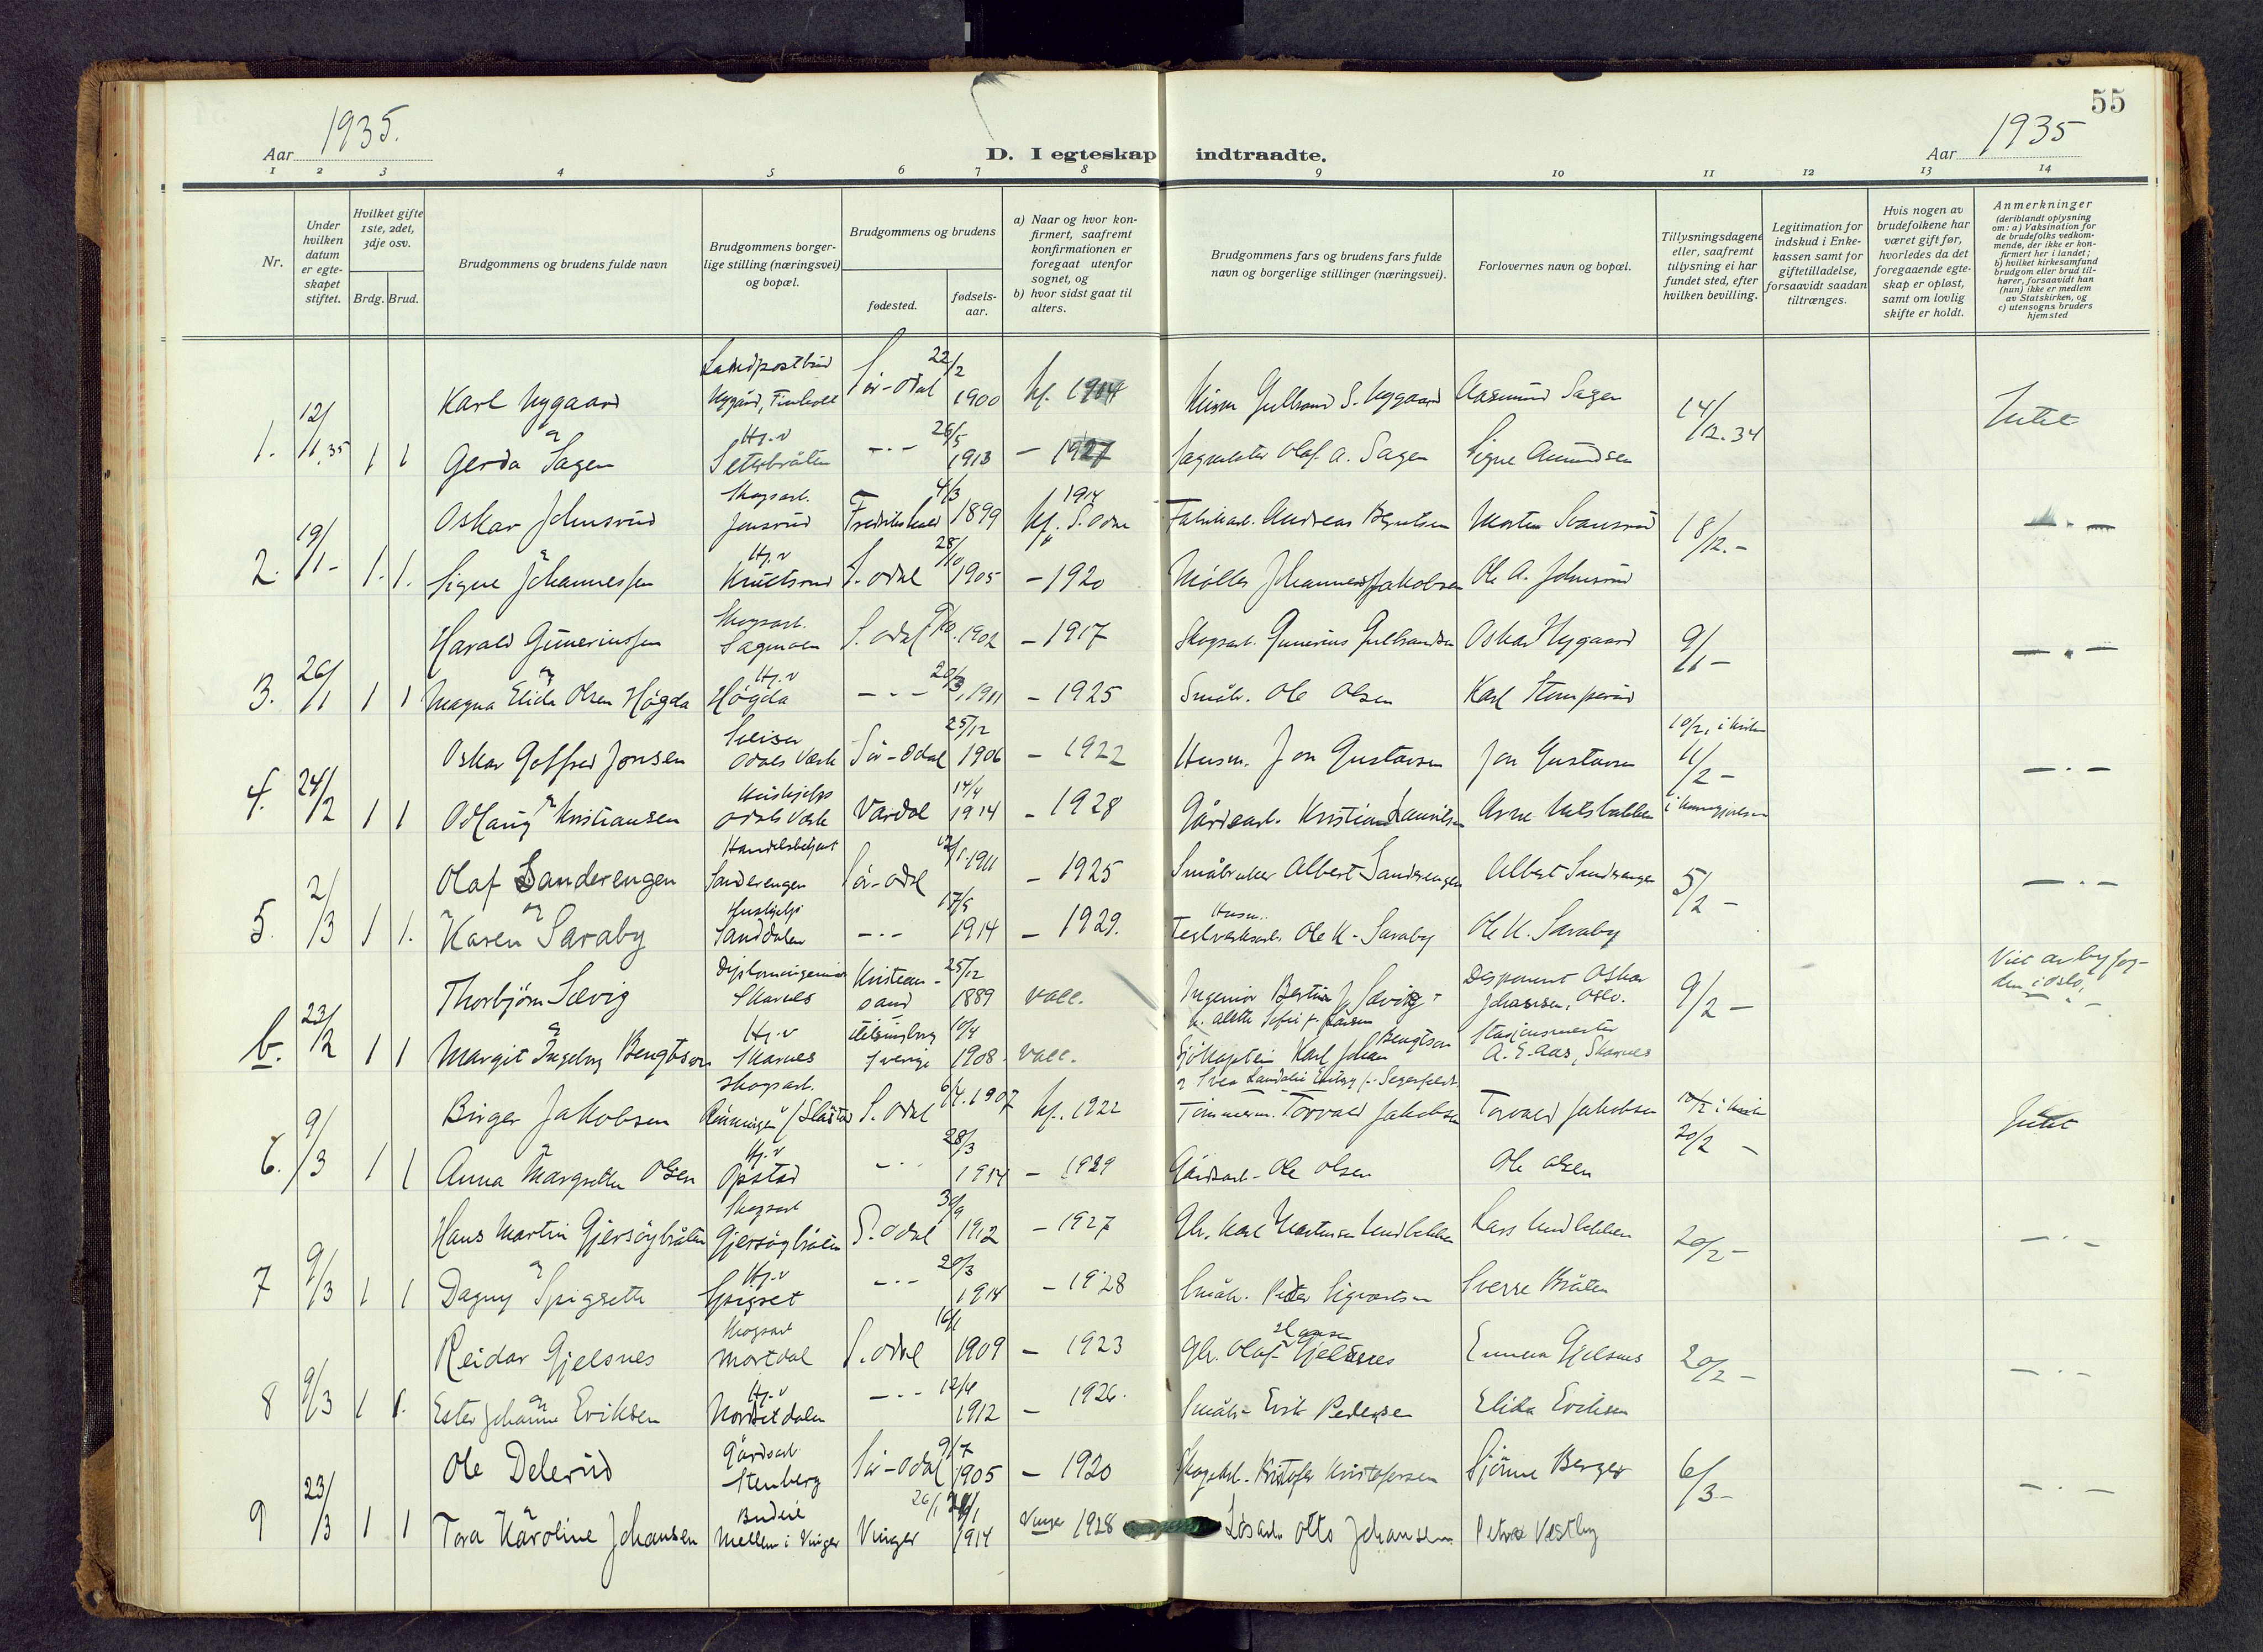 55
Aar 1935.
D. I egteskap indtraadte.
Aar 1935
1 2 3 4 5 6 7 8 9 10 11 12 13 14
Nr.
Under hvilken datum er egte-skapet stiftet.
Hvilket gifte 1ste, 2det, 3dje osv.
Brdg. Brud.
Brudgommens og brudens fulde navn
Brudgommens borger-lige stilling (næringsvei) og bopæl.
Brudgommens og brudens
fødested.
fødsels-aar.
a) Naar og hvor kon-firmert, saafremt konfirmationen er foregaat utenfor sognet, og
b) hvor sidst gaat til alters.
Brudgommens fars og brudens fars fulde navn og borgerlige stillinger (næringsvei).
Forlovernes navn og bopæl.
Tillysningsdagene eller, saafremt tillysning ei har fundet sted, efter hvilken bevilling.
Legitimation for indskud i Enke-kassen samt for giftetilladelse, forsaavidt saadan tiltrænges.
Hvis nogen av brudefolkene har været gift før, hvorledes da det foregaaende egte-skap er opløst, samt om lovlig skifte er holdt.
Anmerkninger (deriblandt oplysning om: a) Vaksination for de brudefolks vedkom-mende, der ikke er kon-firmert her i landet; b) hvilket kirkesamfund brudgom eller brud til-hører, forsaavidt han (hun) ikke er medlem av Statskirken, og c) utensogns bruders hjemsted
1. 12/1.35 1 1
Karl Nygaard Landpostbud Nygård 22/2 Sør-Odal 1900 kf. 1914 Gullbrand S. Nygaard Aasmund Sagen 14/12.34 Intet
Gerda Sagen Hj.v Seterbråten -.- 26/5 1913 - 1927 Olaf A. Sagen Signe Amundsen
2. 19/1- 1. 1.
Oskar Johnsrud Skogsarb. Jonsrud Fredrikshald 4/3 1899 1914 kf. S. Odal Fabrikarb. Andreas Berntsen Morten 18/12.- -.-
Signe Johannessen Hj.v Knutsrud S. Odal 28/10 1905 - 1920 Møller Johannes Jakobsen Ole A. Johnsrud
3. 26/1 1 1
Harald Gunerinssen Skogsarb. Sagmoen S. Odal 1902 - 1917 Skogsarb. Gunerius Gulbrandsen Oskar Nygaard 9/1- -.-
Magna Elida Olsen Høgda Hj.v Høgda -.- 1911 - 1925 Småbr. Ole Olsen Karl Stomperud
4. 24/2 1 1
Oskar Gotfred Jonsen Odals Værk Sør-Odal 25/12 1906 - 1922 Husm. Jon Gustavsen Jon Gustavsen 10/2, i kirken 11/2- -.-
Odlaug Kristiansen Hushjelp Odals Værk Vardal 14/4 1914 - 1928 Gårdsarb. Kristian Lauritsen Arne
5. 2/3 1 1.
Olaf Sanderengen Handelsbetjent Sanderengen Sør-Odal 1911 - 1925 Småbruker Albert Sanderengen Albert Sanderengen 5/2- -.-
Karen Saraby Hushjelp Sanddalen -.- 17/5 1914 - 1929. Husm. Teglverksarb. Ole K. Saraby Ole K. Saraby
b. 23/2 1 1
Thorbjørn Sævig Diplomingeniør Skarnes Kristian-sand 25/12 1889 vacc. Ingeniør Sævig Disponent Oskar Johansen, Oslo. 9/2- Viet av byfog-den i Oslo.
Margit Ingeborg Bengtson Hj.v Skarnes Helsingborg Sverige 10/4 1908. vacc. Sjøkaptein Karl Johan Bengtson Stasjonsmester A. E. Aas, Skarnes
6. 9/3 1 1
Birger Jakobsen Skogsarb. S. Odal 6/4.1907 kf. 1922 Tømmerm. Torvald Jakobsen Torvald Jakobsen 20/2- Intet
Anna Margrethe Olsen Hj.v Opstad -.- 28/3 1914 - 1929 Gårdsarb. Ole Olsen Ole Olsen
7 9/3 1 1
Hans Martin Gjersøybråten Skogsarb. Gjersøybråten S. Odal 30/9 1912 - 1927 Gbr. Karl Lars 20/2- -.-
Dagny Spigseth Hj.v Spigset -.- 20/3 1914 - 1928 Småbr. Peder Sigvartsen Sverre Bråten
8 9/3 1 1.
Reidar Gjelsnes Skogsarb Mortdal S. Odal 16/1 1909 - 1923 Gbr. Olaf Hansen Gjelsnes Emma Gjelsnes 20/2- -.-
Ester Johanne Eriksen Hj.v -.- 12/4 1912 - 1926. Småbr. Erik Pedersen Elida Eriksen
9 23/3 1 1
Ole Delerud Gårdsarb. Stenberg Sør-Odal 9/7 1905 - 1920 Skogsarb. Kristofer Kristofersen Berger 6/3- -.-
Tora Karoline Johansen Budeie Mellem i Vinger Vinger 26/1 1914 Vinger 1928 Løsarb. Otto Johansen Petra Vestby